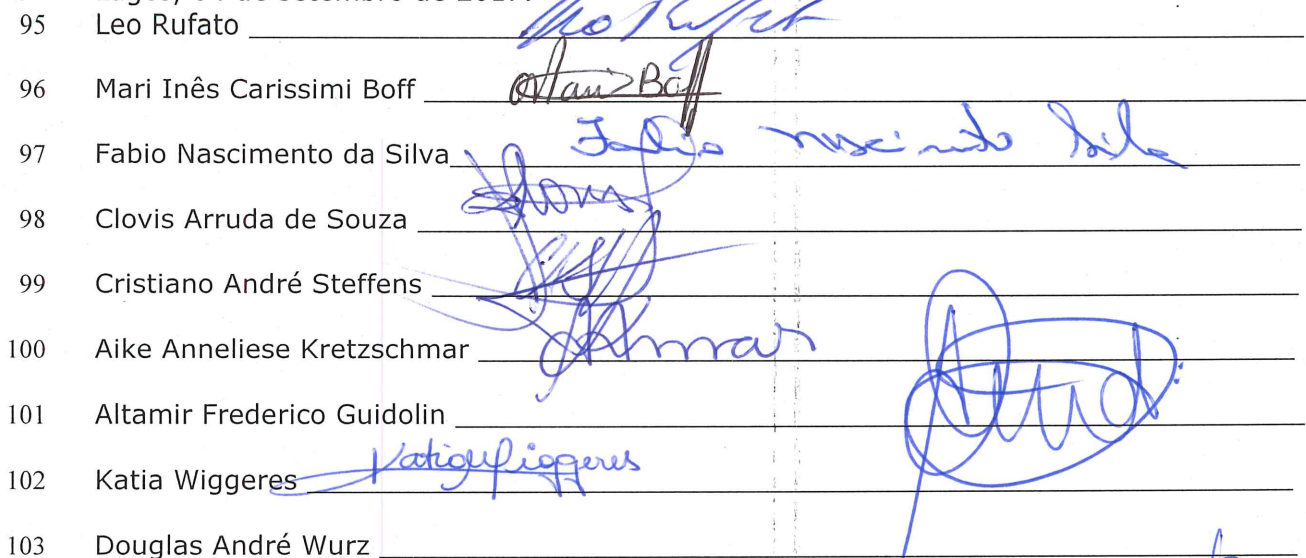 95 Leo Rufato
96 Mari Inês Carissimi Boff Boff
97 Fabio Nascimento da Silva Fabio Silva
98 Clovis Arruda de Souza
99 Cristiano André Steffens
100 Aike Anneliese Kretzschmar
101 Altamir Frederico Guidolin
102 Katia Wiggeres Katia Wiggeres
103 Douglas André Wurz